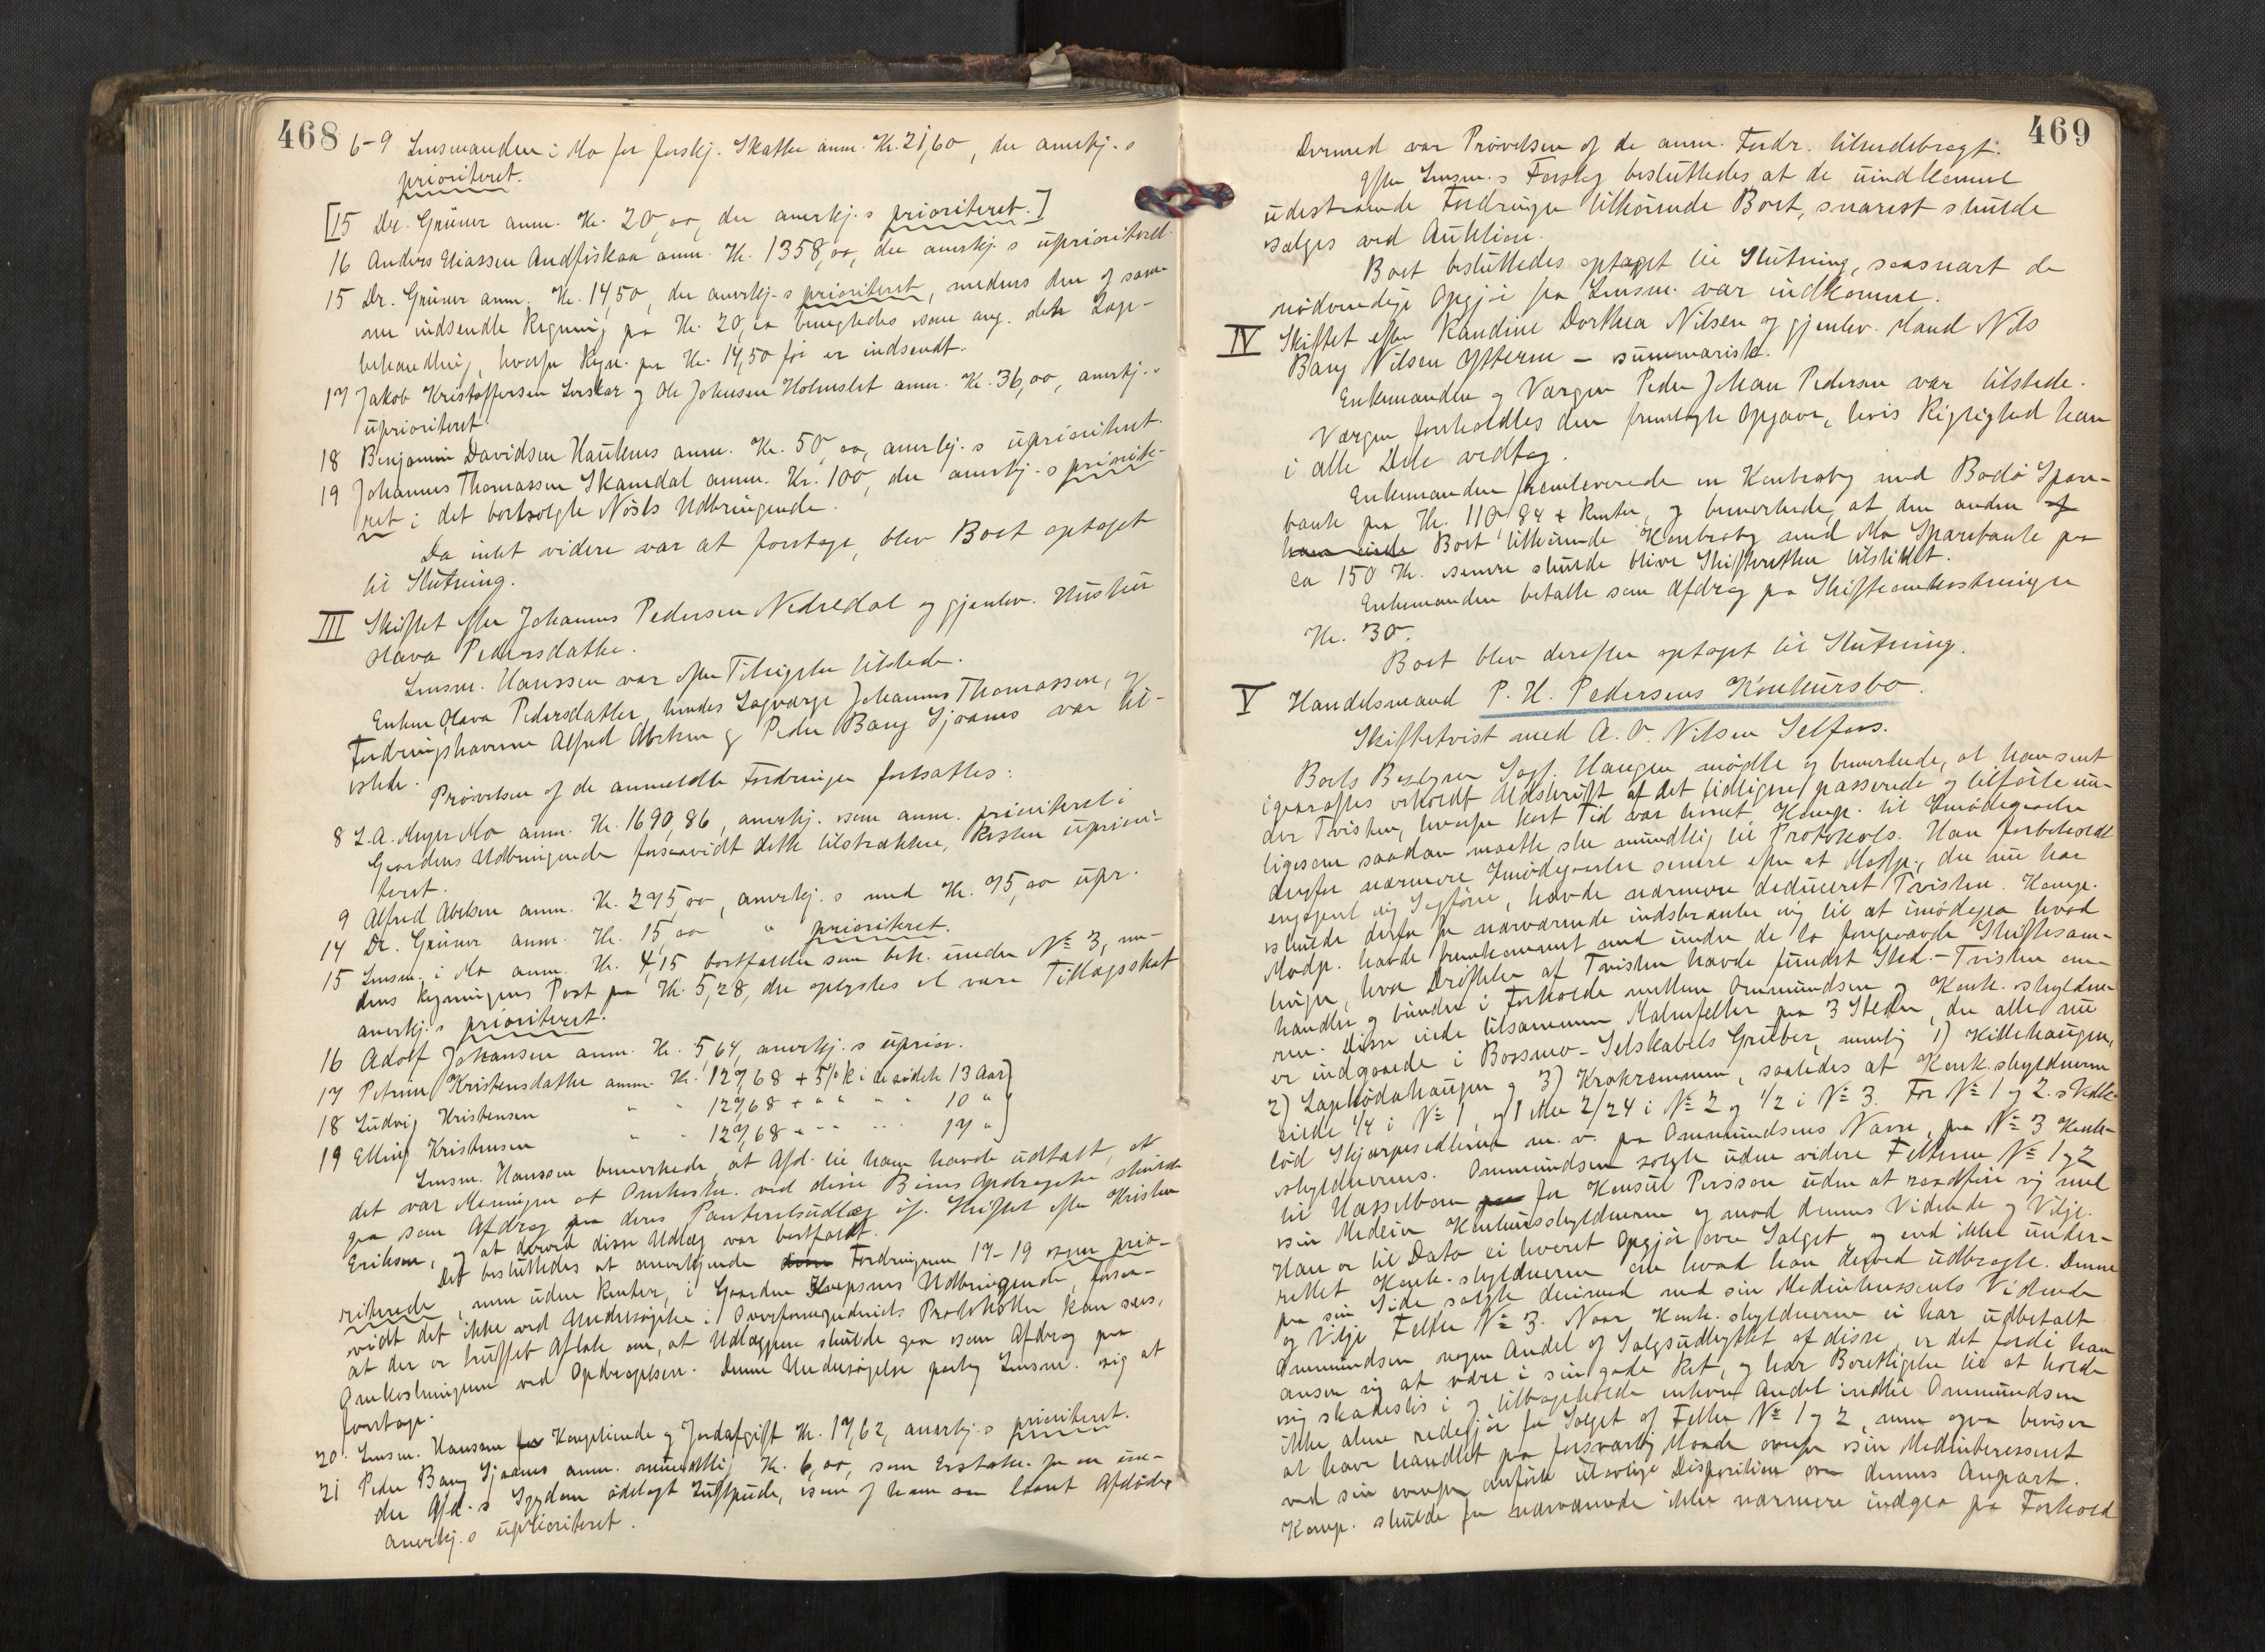 468
6-9 Lensmanden i Mo for forskj. Skatter anm. Kr. 21,60, der anerkj.s
prioriteret.
[15 Dr. Grüner anm. Kr. 20,00, der anerkj.s prioriteret.]
16 Anders Eliassen Andfiskaa anm. Kr. 1358,00, der anerkj.s uprioriteret.
15 Dr. Grüner anm. Kr. 14,50, der anerkj.s prioriteret, medens den og saa
nu indsendte Regning pa Kr. 20,00 benegtedes som ang. den Læge-
behandling, hvorfor Regn. pa Kr. 14,50 før er indsendt.
17 Jakob Kristoffersen og Ole Johnsen Holmslet anm. Kr. 36,00, anerkj.s
uprioriteret.
18 Benjamin Davidsen Hauknes anm. Kr. 50,00, anerkj.s uprioriteret.
19 Johannes Thomassen Skamdal anm. Kr. 100, der anerkj.s priorite-
ret i det bortsolgte Nøsts Udbringende.
Da intet videre var at foretage, blev Boet optaget
til Slutning.
III Skiftet efter Johannes Pedersen Nedredal og gjenlev. Hustru
Olava Pedersdatter.
Lensm. Hanssen var efter Tilsigelse tilstede.
Enken Olava Pedersdatter, hendes Lagværge Johannes Thomassen, og
Fordringshaverne Alfred Abelsen og Peder Bang Sjaanes var til-
stede.
Prøvelsen af de anmeldte Fordringer fortsattes:
8 L.A. Meyer Mo anm. Kr. 1690,86, anerkj. som anm. prioriteret i
Gaardens Udbringende forsaavidt dette tilstrækker, Resten upriori-
teret.
9 Alfred Abelsen anm. Kr. 275,00, anerkj.s med Kr. 75,00 upr.
14 Dr. Grüner anm. Kr. 15,00 " prioriteret.
15 Lensm. i Mo anm. Kr. 4,15 bortfalder som beh. under No 3, me-
dens Regningens Post pa Kr. 5,28, der oplystes at være Tillægsskat
anerkj.s prioriteret.
16 Adolf Johansen anm. Kr. 5,64, anerkj.s uprior.
17 Petrine Kristensdatter anm. Kr. 127,68 + 5% R i de sidste 13 Aar
18 Ludvig Kristensen " " 127,68 + " " " " 10 "
19 Elling Kristensen " " 127,68 + " " " " 17 "
Lensm. Hanssen bemerkede at Afd. til ham havde udtalt, at
det var Meningen at Omkostn. ved disse Børns Opdragelse skulde
gaa som Afdrag paa deres Panteretsudlæg if. Skiftet efter Kristen
Eriksen, og at derved disse Udlæg var bortfaldt.
Det besluttedes at anerkjende Fordringerne 17-19 som prio-
riterede, men uden Renter, i Gaarden Udbringende, forsaa-
vidt det ikke ved Undersøgelse i Overformynderiets Protokoller kan sees,
at der er truffet Aftale om, at Udlæggene skulde gaa som Afdrag paa
Omkostningerne ved Opdragelsen. Denne Undersøgelse paatog Lensm. sig at
foretage.
20 Lensm. Hanssen for Kongetiende og Jordafgift Kr. 17,62, anerkj.s prioriteret.
21 Peder Bang Sjaanes anm. mundtlig Kr. 6,00, som Erstatn. for en un-
der Afd.s Sygdom ødelagt Luftpude, som af ham var laant Afdøde,
anerkj.s uprioriteret.
469
Dermed var Prøvelsen af de anm. Fordr. tilendebragt.
Efter Lensm.s Forslag besluttedes at de uindkomne
udestaaende Fordringer tilhørende Boet, snarest skulde
sælges ved Auktion.
Boet besluttedes optaget til Slutning, saasnart de
nødvendige Opgjør fra Lensm. var indkomne.
IV Skiftet efter Kandine Dorthea Nilsen og gjenlev. Mand Nils
Bang Nilsen Ytteren - summarisk.
Enkemanden og Værgen Peder Johan Pedersen var tilstede.
Værgen foreholdtes den fremlagte Opgave, hvis Rigtighed han
i alle Dele vedtog.
Enkemanden fremleverede en Kontrabog med Bodø Spare-
bank paa Kr. 110,84 + Renter, og bemerkede, at den anden af
ham Boet tilhørende Kontrabog med Mo Sparebank paa
ca 150 Kr. senere skulde blive Skifteretten tilstillet.
Enkemanden betalte som Afdrag paa Skifteomkostninger
Kr. 30.
Boet blev derefter optaget til Slutning.
V Handelsmand P. H. Pedersens Konkursbo.
Skiftetvist med A. O. Nilsen Selfors.
Boets Bestyrer Sagf. Haugen mødte og bemerkede, at han sent
igaaraftes erholdt Udskrift af det tidligere passerede og tilførte un-
der Tvisten, hvorfor kort Tid var levnet Komp. til Imødegaaelse
ligesom saadan maatte ske mundtlig til Protokols. Han forbeholdt
derfor nærmere Imødegaaelse senere efter at Modp., der nu har
engageret sig Sagfører, havde nærmere deduceret Tvisten. Komp.
skulde derfor for nærværende indskrænke sig til at imødegaa hvad
Modp. havde fremkommet med under de to foregaaende Skiftesam-
linger, hvor Drøftelse af Tvisten havde fundet Sted. - Tvisten om-
handler og bunder i Forholdet mellem Ommundsen og Konk.skyldne-
ren. Disse eiede tilsammen Malmfelter paa 3 Steder, der alle nu
er indgaaede i Bossmo-Selskabets Gruber, nemlig 1) Kittelhaugen,
2) Laphødahaugen og 3) Krokremmen, saaledes at Konk.skyldneren
eiede 1/4 i No 1, 2/24 i No 2 og 1/2 i No 3. For No 1 og 2.s Vedk.
lød Skjærpesedlerne m.v. paa Ommundsens Navn, paa No 3 Konk-
skyldnerens. Ommundsen solgte uden videre Felterne No 1 og 2
til Hasselbom for Konsul Persson uden at raadføre sig med
sin Medeier Konkursskyldneren og mod dennes Vidende og Vilje.
Han er til Dato ei leveret Opgjør over Salget, og end ikke under-
rettet Konk.skyldneren om hvad han derved udbragte. Denne
paa sin Side solgte derimod med sin Medinteressents Vidende
og Vilje Feltet No 3. Naar Konk.skyldneren ei har udbetalt
Ommundsen nogen Andel af Salgsudbyttet af disse, er det fordi han
anser sig at være i sin gode Ret, og har Berettigelse til at holde
sig skadesløs i og tilbageholde enhver Andel indtil Ommundsen
ikke alene redegjør for Salget af Felter No 1 og 2, men ogsaa beviser
at have handlet paa forsvarlig Maade overfor sin Medinteressent
ved sin ovenfor anførte ulovlige Disposition over dennes Anpart.
Komp. skulde for nærværende ikke nærmere indgaa paa Forhold